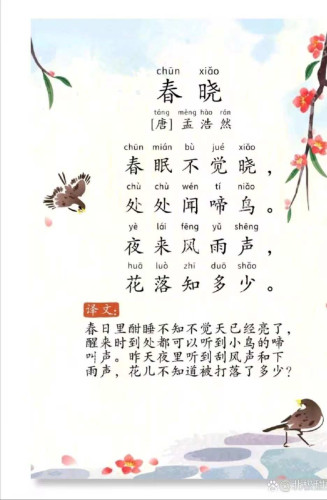 chūn xiǎo
春晓
táng mèng hào rán
[唐] 孟浩然
chūn mián bù jué xiǎo
春眠不觉晓，
chù chù wén tí niǎo
处处闻啼鸟。
yè lái fēng yǔ shēng
夜来风雨声，
huā luò zhī duō shǎo
花落知多少。
译文：
春日里酣睡不知不觉天已经亮了，
醒来时到处都可以听到小鸟的啼
叫声。昨天夜里听到刮风声和下
雨声，花儿不知道被打落了多少？